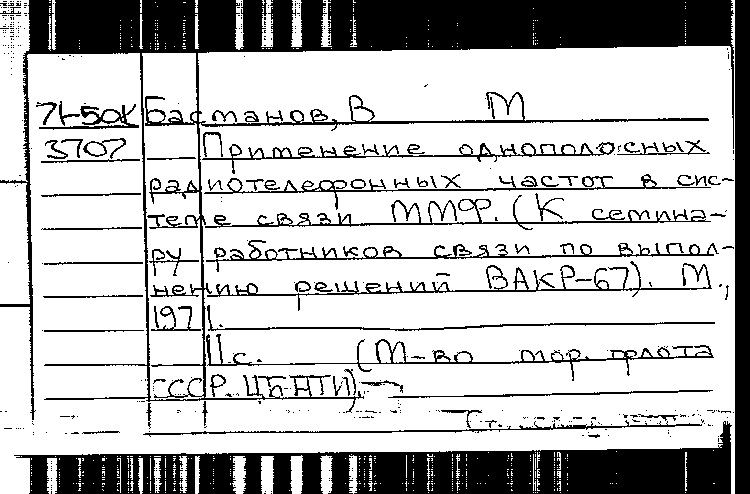 71-50К Бастанов, В М
3707 Применение однополосных
радиотелефонных частот в сис-
теме связи ММФ. (К семина-
ру работников связи по выпол-
нению решений ВАКР-67). М.,
1971.
11с. (М-во мор. флота
СССР. ЦБНТИ).